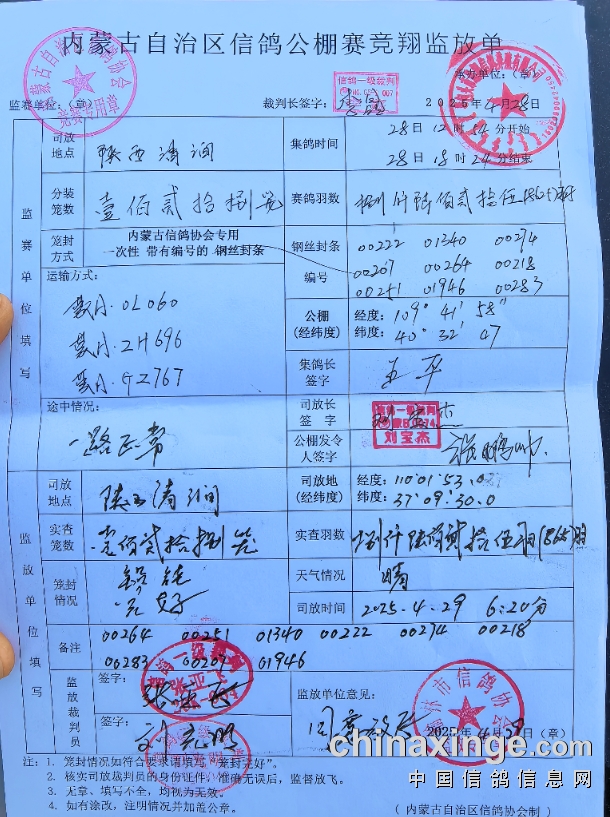 内蒙古自治区信鸽公棚赛竞翔监放单
监赛单位：（章）
裁判长签字：
承办单位：（章）
2025年4月28日
信鸽一级裁判
竞赛专用章
监赛单位填写
司放地点
陕西清涧
集鸽时间
28日12时54分开始
28日18时24分结束
分装笼数
壹佰贰拾捌笼
赛鸽羽数
捌仟陆佰贰拾伍(8625)羽
笼封方式
内蒙古信鸽协会专用
一次性 带有编号的 钢丝封条
钢丝封条编号
00222 01340 00274
00207 00264 00218
00251 01946 00283
运输方式：
冀A·0L060
冀A·ZH696
冀A·GZ767
公棚（经纬度）
经度：109° 41' 58"
纬度：40° 32' 47
集鸽长签字
王平
途中情况：
一路正常
司放长签字
信鸽一级裁判
刘宝杰
公棚发令人签字
监放单位填写
司放地点
陕西清涧
司放地（经纬度）
经度：110°01'53.0
纬度：37°09'30.0
实查笼数
壹佰贰拾捌笼
实查羽数
捌仟陆佰贰拾伍羽(8625)羽
笼封情况
完好
天气情况
晴
司放时间
2025.4.29 6:20分
备注
00264 00251 01340 00222 00274 00218
00283 00207 01946
监放裁判员
签字：
签字：
监放单位意见：
同意放飞
市信鸽协会
2025年4月29（章）
注：1. 笼封情况如符合要求请填写“笼封完好”。
2. 核实司放裁判员的身份证件，准确无误后，监督放飞。
3. 无章、填写不全，均视为无效。
4. 如有涂改，注明情况并加盖公章。
（内蒙古自治区信鸽协会制）
chinaxinge.com
中国信鸽信息网